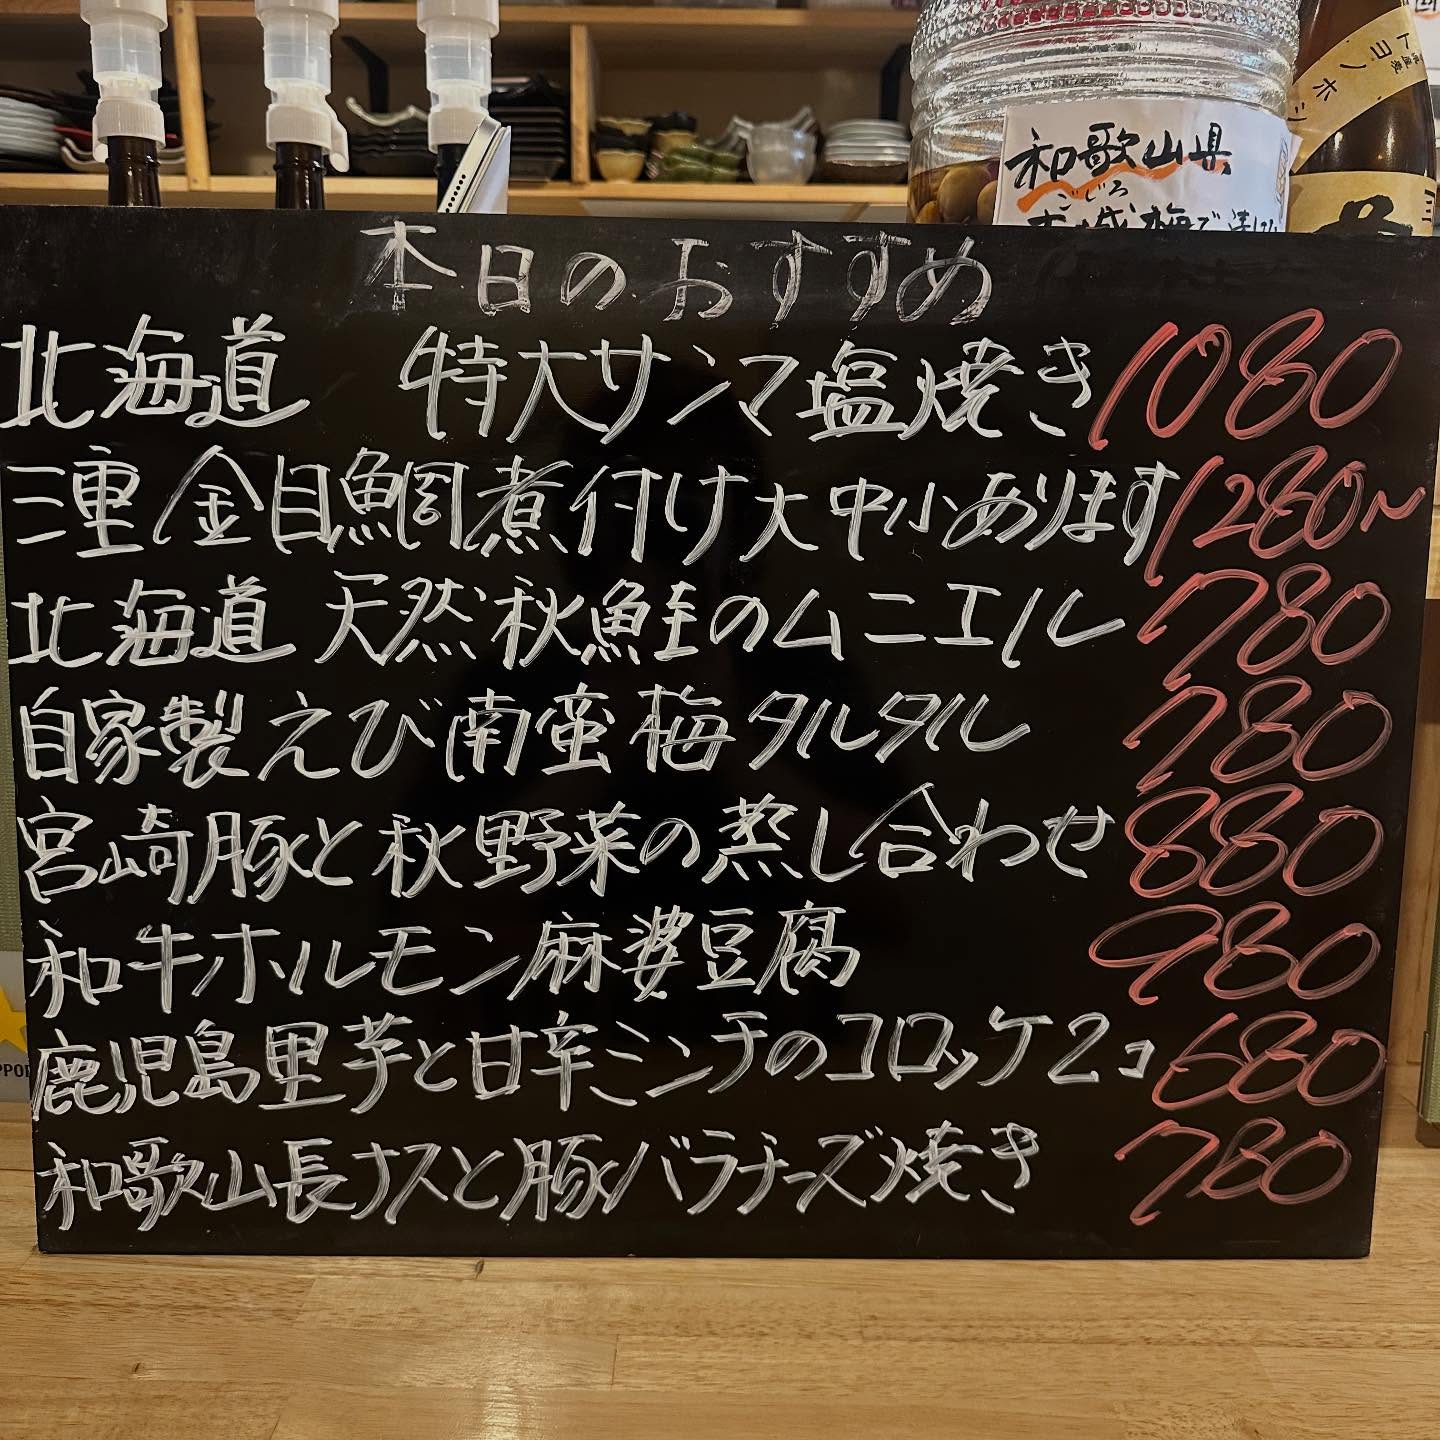 和歌山県
ごじろ
本日のおすすめ
北海道 特大サンマ塩焼き 1080
三重 金目鯛煮付け大中小あります 1280~
北海道 天然秋鮭のムニエル 780
自家製えび南蛮梅タルタル 780
宮崎豚と秋野菜の蒸し合わせ 880
和牛ホルモン麻婆豆腐 980
鹿児島里芋と甘辛ミンチのコロッケ2コ 680
和歌山長ナスと豚バラチーズ焼き 780